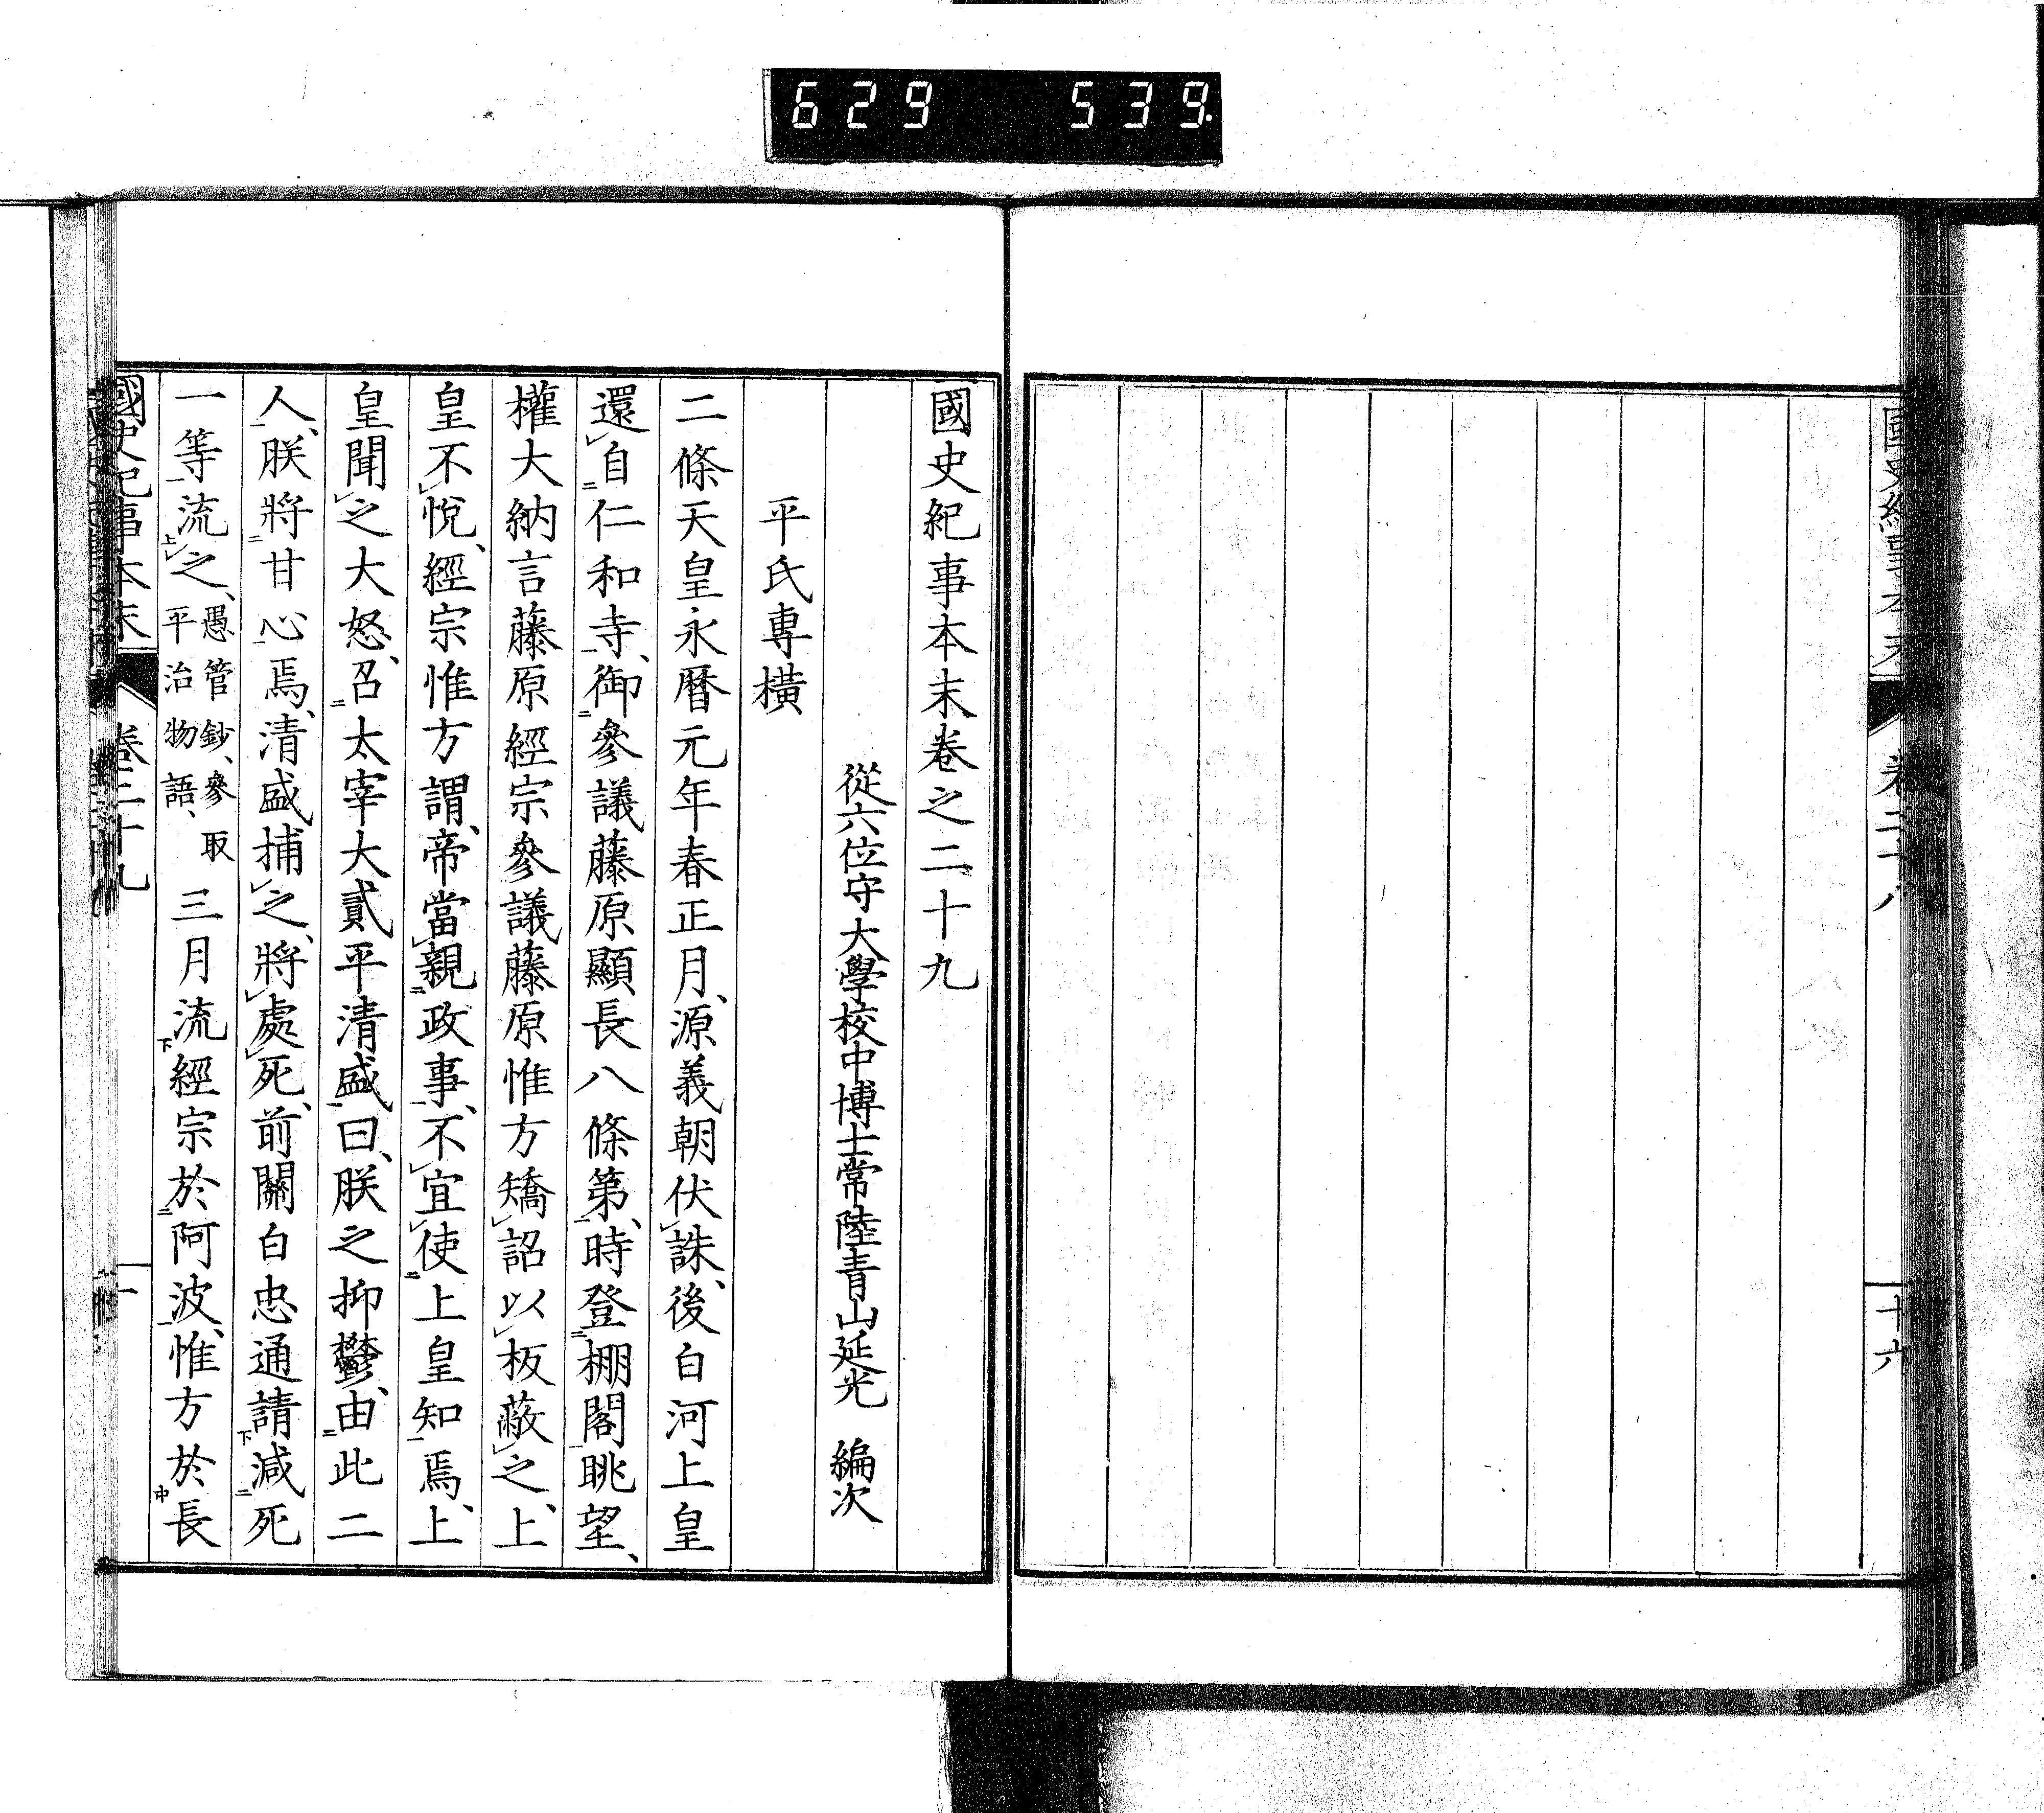 629 539.
十六
國史紀事本末卷之二十九
從六位守大學校中博士常陸青山延光 編次
平氏專橫
二條天皇永曆元年春正月、源義朝伏㆑誅、後白河上皇
還㆑自㆓仁和寺㆒、御㆓參議藤原顯長八條第㆒、時登㆓棚閣㆒眺望、
權大納言藤原經宗參議藤原惟方矯㆑詔以㆑板蔽㆑之、上
皇不㆑悅、經宗惟方謂、帝當㆑親㆓政事㆒、不㆑宜㆑使㆓上皇知㆒焉、上
皇聞㆑之大怒、召㆓太宰大貳平清盛㆒曰、朕之抑鬱、由㆓此二
人㆒、朕將㆓甘心㆒焉、清盛捕㆑之、將㆑處㆑死、前關白忠通請㆘減㆓死
一等㆒流㆖㆑之、愚管鈔、參取平治物語、三月流㆘經宗於㆓阿波㆒、惟方於㆗長
國史紀事本末 卷二十九 一